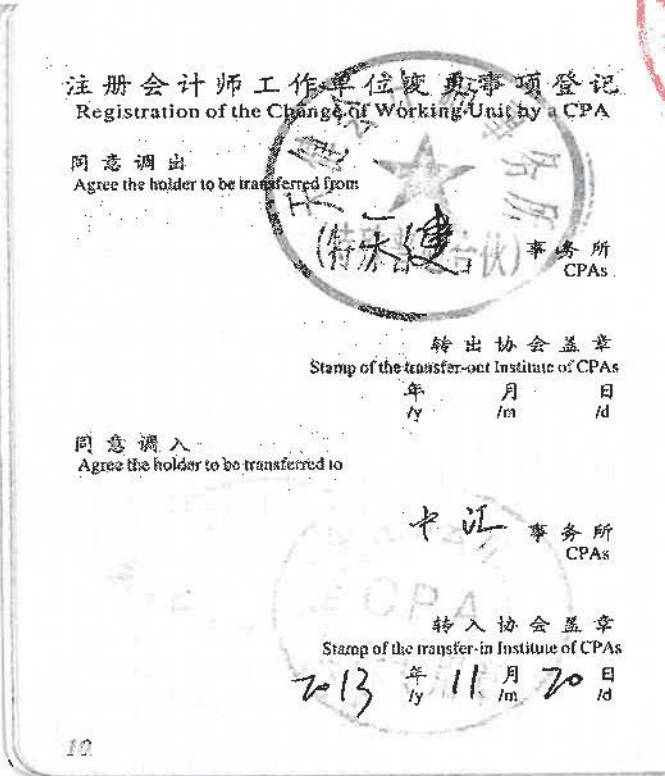 注册会计师工作单位变更事项登记
Registration of the Change of Working Unit by a CPA
同意调出
Agree the holder to be transferred from
天健会计师事务所
(特殊普通合伙)
天健 事务所
CPAs
转出协会盖章
Stamp of the transfer-out Institute of CPAs
年 月 日
/y /m /d
同意调入
Agree the holder to be transferred to
中汇 事务所
CPAs
CPA
转入协会盖章
Stamp of the transfer-in Institute of CPAs
2013 年 11 月 20 日
/y /m /d
10